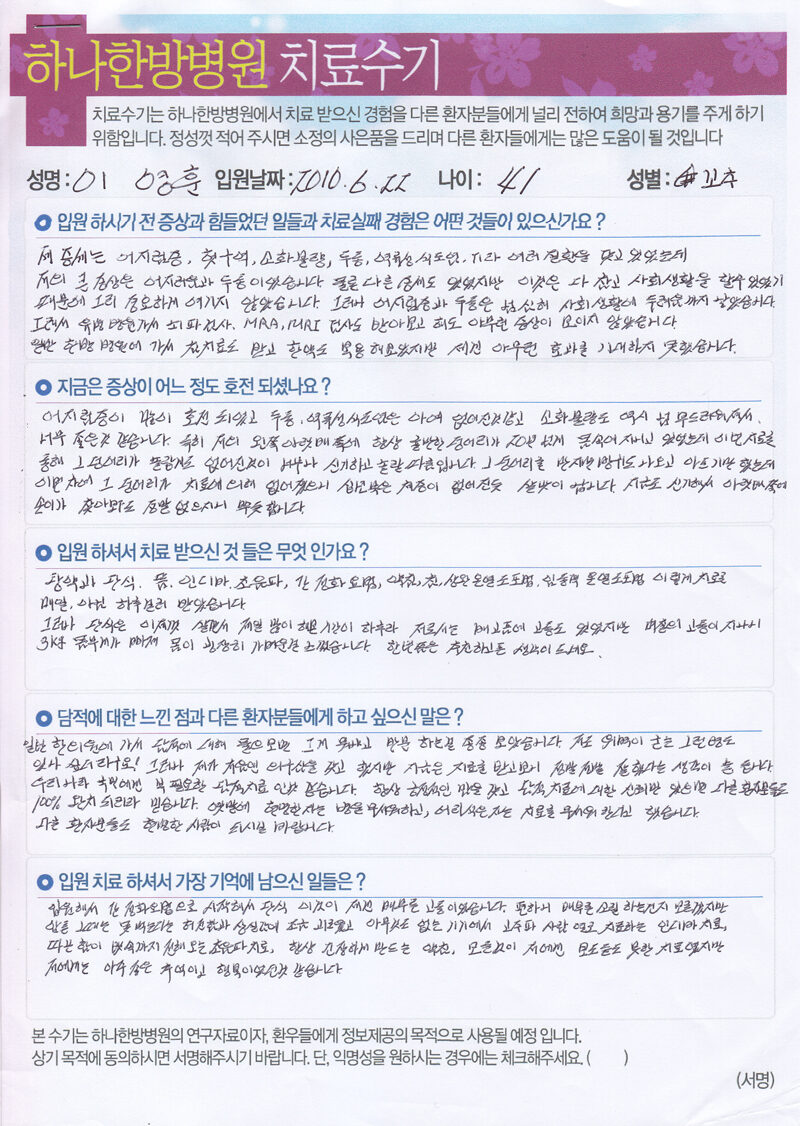 하나한방병원 치료수기
치료수기는 하나한방병원에서 치료 받으신 경험을 다른 환자분들에게 널리 전하여 희망과 용기를 주게 하기
위함입니다. 정성껏 적어 주시면 소정의 사은품을 드리며 다른 환자들에게는 많은 도움이 될 것입니다
성명 : 이 영훈 입원날짜 : 2010. 6. 22 나이 : 41 성별 :
입원 하시기 전 증상과 힘들었던 일들과 치료실패 경험은 어떤 것들이 있으신가요 ?
제 증세는 어지럼증, 헛구역, 소화불량, 두통, 역류성식도염, 기타 여러 질환을 앓고 있었는데
저의 큰 증상은 어지러움과 두통이었습니다 별로 다른 증세도 있었지만 이것은 다 참고 사회생활을 할수 있었기
때문에 그리 중요하게 여기지 않았습니다 그러나 어지럼증과 두통은 넘 심해 사회생활에 두려움까지 왔습니다.
그래서 병원가서 뇌파검사, MRA, MRI 검사도 받아보고 해도 아무런 증상이 보이지 않았습니다
일반 한방병원에 가서 침치료도 받고 한약도 복용해보았지만 제겐 아무런 효과를 기대하지 못했습니다.
지금은 증상이 어느 정도 호전 되셨나요 ?
어지럼증이 많이 호전 되었고 두통, 역류성식도염은 아예 없어진것같고 소화불량도 역시 넘 부드러워져서,
너무 좋은것 같습니다. 특히 저의 왼쪽 아랫배쪽에 항상 딴딴한 덩어리가 20년 넘게 있었는데 이번 치료를
통해 그 덩어리가 없어진것이 너무나 신기하고 놀랄 따름입니다 그 덩어리를 나오고 아프기만 했는데
이번차에 그 덩어리가 치료에 의해 없어졌으니 체증이 없어진듯 살맛이 납니다. 지금도 신기해서 아랫배쪽에
손이가 찾아봐도 정말 없으지니 뿌듯합니다
입원 하셔서 치료 받으신 것 들은 무엇 인가요 ?
탕약과 단식, 뜸, 인디바, 초음파, 간 정화요법, 약침, 침, 운동요법 이렇게 치료를
매일, 아침 하루걸러 받았습니다
그러나 단식은 이제껏 살면서 제일 많이 해본 시간이 하루라 저로서는 배고픔에 고통도 있었지만 며칠의 고통이 지나니
3kg 몸무게가 빠져 몸이 굉장히 가벼운걸 느꼈습니다 한번쯤은 추천하고픈 생각이 드네요.
담적에 대한 느낀 점과 다른 환자분들에게 하고 싶으신 말은 ?
일반 한의원에 가서 담적에 대해 물으보면 그게 뭐냐고 반문 하는걸 종종 보았습니다 저도
그러나 제가 처음엔 의구심을 갖고 했지만 지금은 치료를 받고보니 정말정말 잘했다는 생각이 듭니다
우리나라 국민에겐 꼭 필요한 담적치료 인것 같습니다. 항상 긍정적인 맘을 갖고 담적치료에 대한 신뢰만 있으면 다른 환자분들도
100% 완치 되리라 믿습니다. 옛말에 현명한자는 병을 무서워하고, 어리석은자는 치료를 무서워 한다고 했습니다
다른 환자분들도 현명한 사람이 되시길 바랍니다.
입원 치료 하셔서 가장 기억에 남으신 일들은 ?
입원해서 간 정화요법으로 시작해서 단식 이것이 제겐 매우큰 고통이었습니다. 지만
아무것도 없는 기기에서 고주파 사람 열로 치료하는 인디바 치료,
초음파치료, 항상 긴장하게 만드는 약침, 모든것이 저에겐 못한 치료였지만
저에게는 아주 좋은 추억이고 행복이었던것 같습니다
본 수기는 하나한방병원의 연구자료이자, 환우들에게 정보제공의 목적으로 사용될 예정 입니다.
상기 목적에 동의하시면 서명해주시기 바랍니다. 단, 익명성을 원하시는 경우에는 체크해주세요. ( )
(서명)